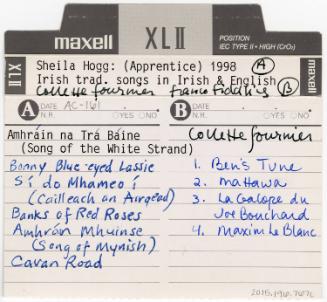 maxell XLII POSITION
IEC TYPE II • HIGH (CrO₂)
maxell
XLII
Sheila Hogg: (Apprentice) 1998 A
Irish trad. songs in Irish & English
Collette fournier franco fiddling B
A DATE AC-161
N.R. YES NO
B DATE
N.R. YES NO
Amhráin na Trá Báine
(Song of the White Strand)
Bonny Blue-eyed Lassie
Sí do Mhameo í
(Cailleach an Airgead)
Banks of Red Roses
Amhrán Mhuinse
(Song of Mynish)
Cavan Road
Collette fournier
1. Ben's Tune
2. Mattawa
3. La Galope du
Joe Bouchard
4. Maxim Le Blanc